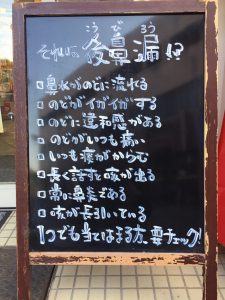 こうびろう
それは、後鼻漏!?
□鼻水がのどに流れる
□のどがイガイガする
□のどに違和感がある
□のどがいつも痛い
□いつも痰がからむ
□長く話すと咳が出る
□常に鼻炎ぎみである
□咳が長引いている
1つでも当てはまる方、要チェック!